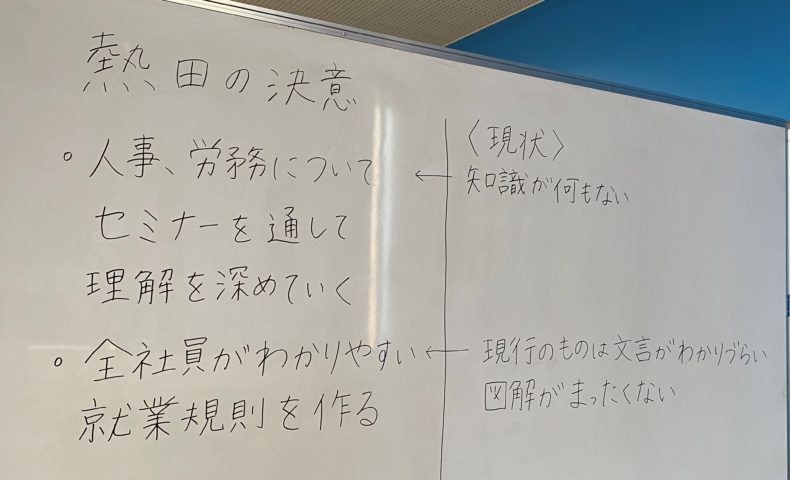 熱田の決意
。人事、労務について
セミナーを通して
理解を深めていく
。全社員がわかりやすい
就業規則を作る
〈現状〉
← 知識が何もない
← 現行のものは文言がわかりづらい
図解がまったくない